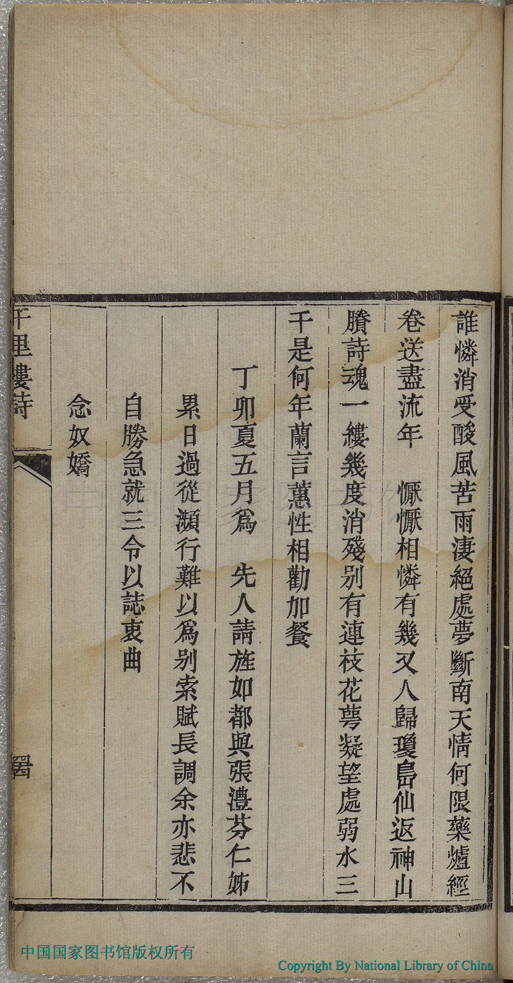 誰憐消受酸風苦雨淒絕處夢斷南天情何限藥爐經
卷送盡流年　懨懨相憐有幾又人歸瓊島仙返神山
賸詩魂一縷幾度消殘別有連枝花萼凝望處弱水三
千是何年蘭言蕙性相勸加餐
丁卯夏五月爲　先人請旌如都與張澧芬仁姊
累日過從瀕行難以爲別索賦長調余亦悲不
自勝急就三令以誌衷曲
念奴嬌
千里樓詩
中国国家图书馆版权所有
Copyright By National Library of China